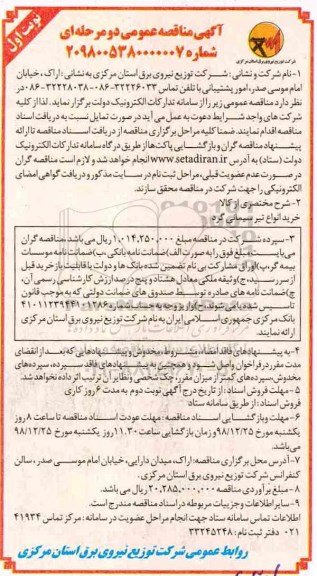 نوبت اول
شرکت توزیع نیروی برق استان مرکزی
آگهی مناقصه عمومی دو مرحله‌ای
شماره ۲۰۹۸۰۰۵۳۸۰۰۰۰۰۰۷
۱-نام شرکت و نشانی: شرکت توزیع نیروی برق استان مرکزی به نشانی: اراک، خیابان
امام موسی صدر، امور پشتیبانی با تلفن تماس ۳۲۲۲۶۰۳۳-۰۸۶ و ۳۲۲۲۸۰۳۸-۰۸۶ در
نظر دارد مناقصه عمومی زیر را از سامانه تدارکات الکترونیک دولت برگزار نماید. لذا از کلیه
شرکت های واجد شرایط دعوت به عمل می آید در صورت تمایل نسبت به دریافت اسناد
مناقصه اقدام نمایند. ضمنا کلیه مراحل برگزاری مناقصه از دریافت اسناد مناقصه تا ارائه
پیشنهاد مناقصه گران و بازگشایی پاکت‌ها از طریق درگاه سامانه تدارکات الکترونیک
دولت (ستاد) به آدرس www.setadiran.ir انجام خواهد شد و لازم است مناقصه گران
در صورت عدم عضویت قبلی، مراحل ثبت نام در سایت مذکور و دریافت گواهی امضای
الکترونیکی را جهت شرکت در مناقصه محقق سازند.
۲-شرح مختصری از کالا:
خرید انواع تیر سیمانی گرد
۳-سپرده شرکت در مناقصه مبلغ ۱,۰۱۴,۲۵۰,۰۰۰ ریال می باشد. مناقصه گران
می‌بایست، مبلغ فوق را به صورت: الف) ضمانت نامه بانکی، ب) ضمانت نامه موسسات
بیمه گر، پ) اوراق مشارکت بی نام تضمین شده بانک ها و دولت با قابلیت بازخرید قبل
از سررسید، ج) وثیقه ملکی معادل هشتاد و پنج درصد ارزش کارشناسی رسمی آن،
چ) ضمانت نامه های صادره توسط صندوق های ضمانت دولتی که به موجب قانون
تاسیس شده یا می شوند، ح) واریز وجه به حساب شماره ۴۱۰۱۱۲۳۹۴۴۱۰۱۲۸۶
بانک مرکزی جمهوری اسلامی ایران به نام شرکت توزیع نیروی برق استان مرکزی
ارائه نمایند.
۴-به پیشنهادهای فاقد امضاء، مشروط، مخدوش و پیشنهادهایی که بعد از انقضای
مدت مقرر در فراخوان واصل شود و همچنین به پیشنهادهای فاقد سپرده، سپرده‌های
مخدوش، سپرده‌های کمتر از میزان مقرر، چک شخصی و نظایر آن ترتیب اثر داده نخواهد شد.
۵-مهلت فروش اسناد: از تاریخ درج آگهی نوبت دوم به مدت ۶ روز کاری
فروش اسناد: از طریق سامانه ستاد
۶-مهلت و بازگشایی اسناد مناقصه: مهلت عودت اسناد مناقصه تا ساعت ۸ روز
یکشنبه مورخ ۹۸/۱۲/۲۵ و زمان بازگشایی ساعت ۱۱:۳۰ روز یکشنبه مورخ ۹۸/۱۲/۲۵
می‌باشد.
۷-آدرس محل برگزاری مناقصه: اراک، میدان دارایی، خیابان امام موسی صدر، سالن
کنفرانس شرکت توزیع نیروی برق استان مرکزی.
۸-مبلغ برآوردی مناقصه ۲۰,۲۸۵,۰۰۰,۰۰۰ ریال می باشد.
۹-سایر اطلاعات و جزییات مربوطه در اسناد مناقصه مندرج است.
اطلاعات تماس سامانه ستاد جهت انجام مراحل عضویت در سامانه: مرکز تماس ۴۱۹۳۴
-۰۲۱ دفتر ثبت نام: ۳۳۲۴۵۲۴۸
روابط عمومی شرکت توزیع نیروی برق استان مرکزی